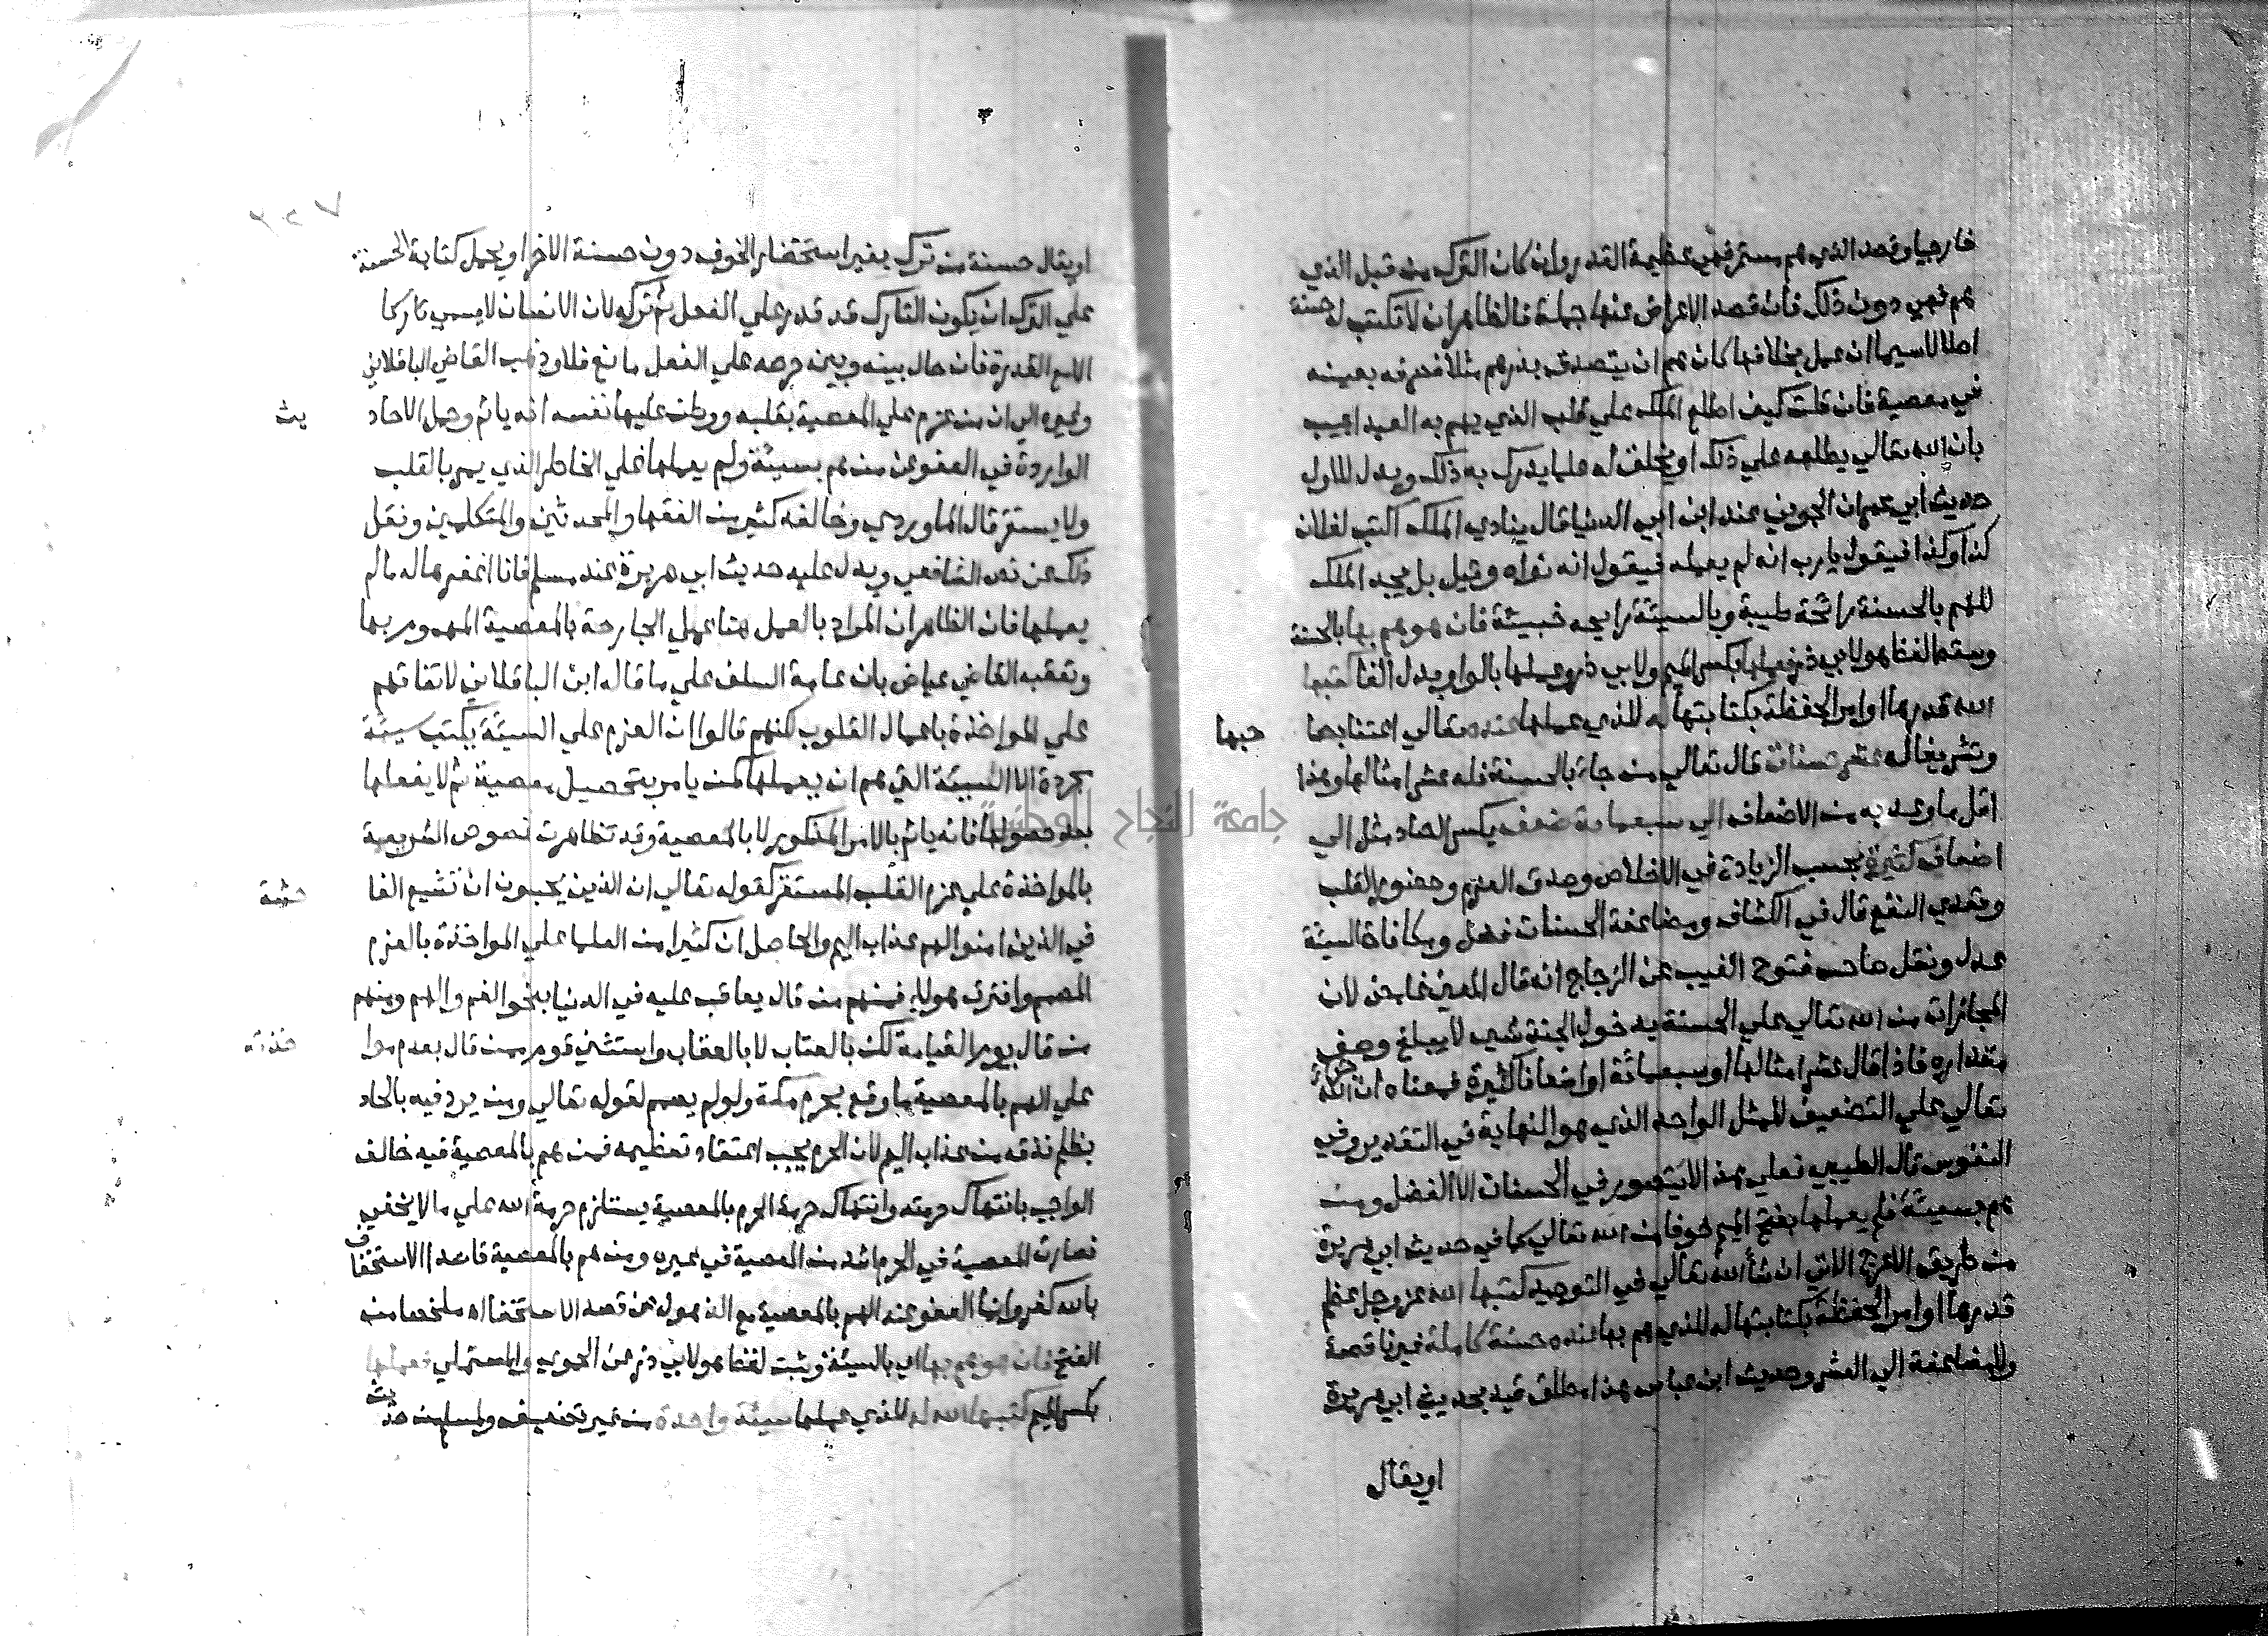 خارجيا وقصد الذي هم مستمر فهي عظيمة القدر وان كان الترك من قبل الذي
هم فهي دون ذلك فان قصد الاعراض عنها جملة فالظاهر ان لا تكتب له حسنة
اصلا لاسيما ان عمل بخلافها كان هم ان يتصدق بدرهم مثلا فصرفه بعينه
في معصية فان قلت كيف اطلع الملك على قلب الذي يهم به العبد اجيب
بان الله تعالي يطلعه علي ذلك او يخلق له علما يدرك به ذلك ويدل للاول
حديث ابي عمران الجوني عند ابن ابي الدنيا قال ينادي الملك اكتب لفلان
كذا وكذا فيقول يارب انه لم يعمله فيقول انه نواه وقيل بل يجد الملك
للهم بالحسنة رائحة طيبة وبالسيئة رايحه خبيثة فان هو هم بها بالحسنة
وسقط لفظ هو لابي ذر فعملها بكسر الميم ولابي ذر وعملها بالواو بدل الفا كتبها
الله قدرها او امر الحفظة بكتابتها له للذي عملها عنده تعالي اعتنا بصا
حبها
وتشريفا له عشر حسنات قال تعالي من جاء بالحسنة فله عشر امثالها وهذا
اقل ما وعد به من الاضعاف الي سبعماية ضعف بكسر الضاد مثل الي
اضعاف كثيرة بحسب الزيادة في الاخلاص وصدق العزم وحضور القلب
وتعدي النفع قال في الكشاف ومضاعفة الحسنات فضل ومكافاة السيئة
عدل ونقل صاحب فتوح الغيب عن الزجاج انه قال المعني غامض لان
المجازات من الله تعالي علي الحسنة بدخول الجنة شي لا يبلغ وصف
مقداره فاذا قال عشر امثالها او سبعمائة او اضعافا كثيرة فمعناه ان جزاء الله
تعالي علي التضعيف للمثل الواحد الذي هو النهاية في التقدير وفي
النفوس قال الطيبي فعلي هذا لا يتصور في الحسنات الا الفضل ومن
هم بسيئة فلم يعملها بفتح الميم خوفا من الله تعالي كما في حديث ابي هريرة
من طريق الاعرج الاتي ان شاء الله تعالي في التوحيد كتبها الله عز وجل
قدرها او امر الحفظة بكتابتها له للذي هم بها عنده حسنة كاملة غير ناقصة
ولا مضاعفة الي العشر وحديث ابن عباس هذا مطلق قيد بحديث ابي هريرة
او يقال
او يقال حسنة من ترك بغير استحضار الخوف دون حسنة الاخر او يحمل كتابة الحسنة
علي الترك ان يكون التارك قد قدر علي الفعل ثم تركه لان الانسان لا يسمي تاركا
الا مع القدرة فان حال بينه وبين حرصه علي الفعل مانع فلا وذهب القاضي الباقلاني
وغيره الي ان من عزم علي المعصية بقلبه ووطن عليها نفسه انه ياثم وحمل الاحاد
يث
الواردة في العفو عن من هم بسيئة ولم يعملها علي الخاطر الذي يمر بالقلب
ولا يستقر قال الماوردي وخالفه كثير من الفقها والمحدثين والمتكلمين ونقل
ذلك عن نص الشافعي ويدل عليه حديث ابي هريرة عند مسلم فانا اغفرها له مالم
يعملها فان الظاهر ان المراد بالعمل هنا عمل الجارحة بالمعصية المهموم بها
وتعقبه القاضي عياض بان عامة السلف علي ما قاله ابن الباقلاني لاتفاقهم
علي المواخذة باعمال القلوب لكنهم قالوا ان العزم علي السيئة يكتب سيئة
مجردة لا السيئة التي هم ان يعملها كمن يامر بتحصيل معصية ثم لا يفعلها
بعد حصولها فانه ياثم بالامر المذكور لا بالمعصية وقد تظاهرت نصوص الشريعة
بالمواخذة علي عزم القلب المستقر كقوله تعالي ان الذين يحبون ان تشيع الفا
حشة
في الذين امنوا لهم عذاب اليم والحاصل ان كثيرا من العلما علي المواخذة بالعزم
المصمم وافترق هولاء فمنهم من قال يعاقب عليه في الدنيا بنحو الغم والهم ومنهم
من قال يوم القيامة لكن بالعتاب لا بالعقاب واستثني قوم ممن قال بعدم موا
خذته
علي الهم بالمعصية ما وقع بحرم مكة ولو لم يصمم لقوله تعالي ومن يرد فيه بالحاد
بظلم نذقه من عذاب اليم لان الحرم يجب اعتقاد تعظيمه فمن هم بالمعصية فيه خالف
الواجب بانتهاك حرمته وانتهاك حرمة الحرم بالمعصية يستلزم حرمة الله علي ما لا يخفي
فصارت المعصية في الحرم اشد من المعصية في غيره ومن هم بالمعصية قاصدا الاستخفاف
بالله كفر وانما العفو عند الهم بالمعصية مع الذهول عن قصد الاستخفاف اه ملخصا من
الفتح فان هو هم بها اي بالسيئة وثبت لفظ هو لابي ذر عن الحموي والمستملي فعملها
بكسر الميم كتبها الله له للذي عملها سيئة واحدة من غير تضعيف ولمسلم من حديث
جامعة النجاح الوطنية